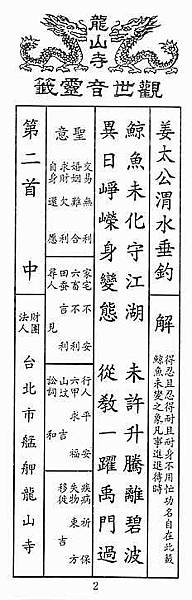 龍山寺
觀世音靈籤
姜太公渭水垂釣
解
得忍且忍得耐且耐身不用忙功名自在此籤
鯨魚未變之象凡事進退待時
鯨魚未化守江湖 未許升騰離碧波
異日崢嶸身變態 從教一躍禹門過
聖意
交易無利
婚姻難合
求財欠利
自身還愿
家宅不安
六畜不利
田蚕吉利
尋人見
行人平安
六甲求福
山坟吉
訟詞和
疾病祈保
失物東方
移徙吉
第二首 中
財團法人
台北市艋舺龍山寺
2